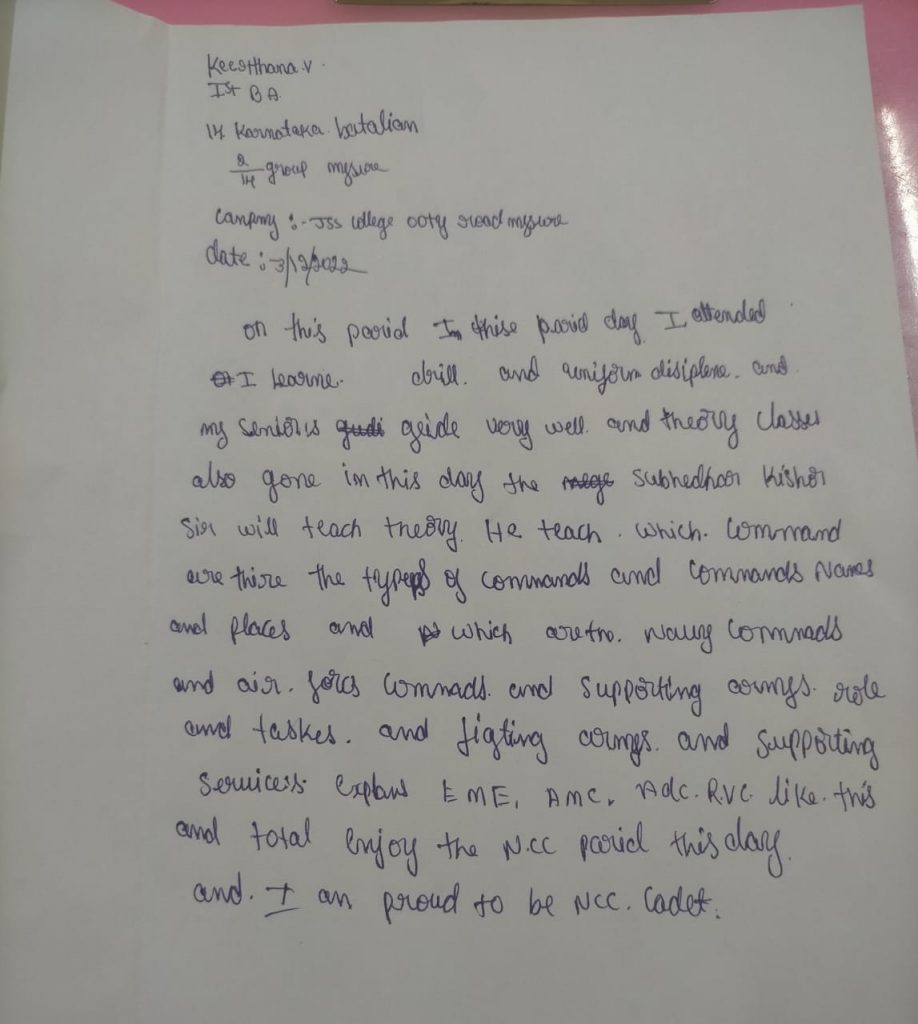 Keerthana.v.
Ist B A.
14 Karnataka. batalian
2/14 group mysure
Campmy :- Jss college ooty road mysure
date :- 3/12/2022
on this parid In thise parid day I attended
I learne. drill. and uniform disiplene. and.
my seniors geide very well. and theory classes
also gone in this day the Subhedhar Kishor
Sir will teach theory. He teach. which. Command
are thire the types of commands and Commands Names
and places and which are the. Navy Commads
and air. forcs Commads. and Supporting corngs. role
and taskes. and figting corngs. and Supporting
Services explans EME, AMC, Adc. R.V.C. like. this
and total enjoy the N.CC parid this day.
and. I an proud to be NCC. Cadet.